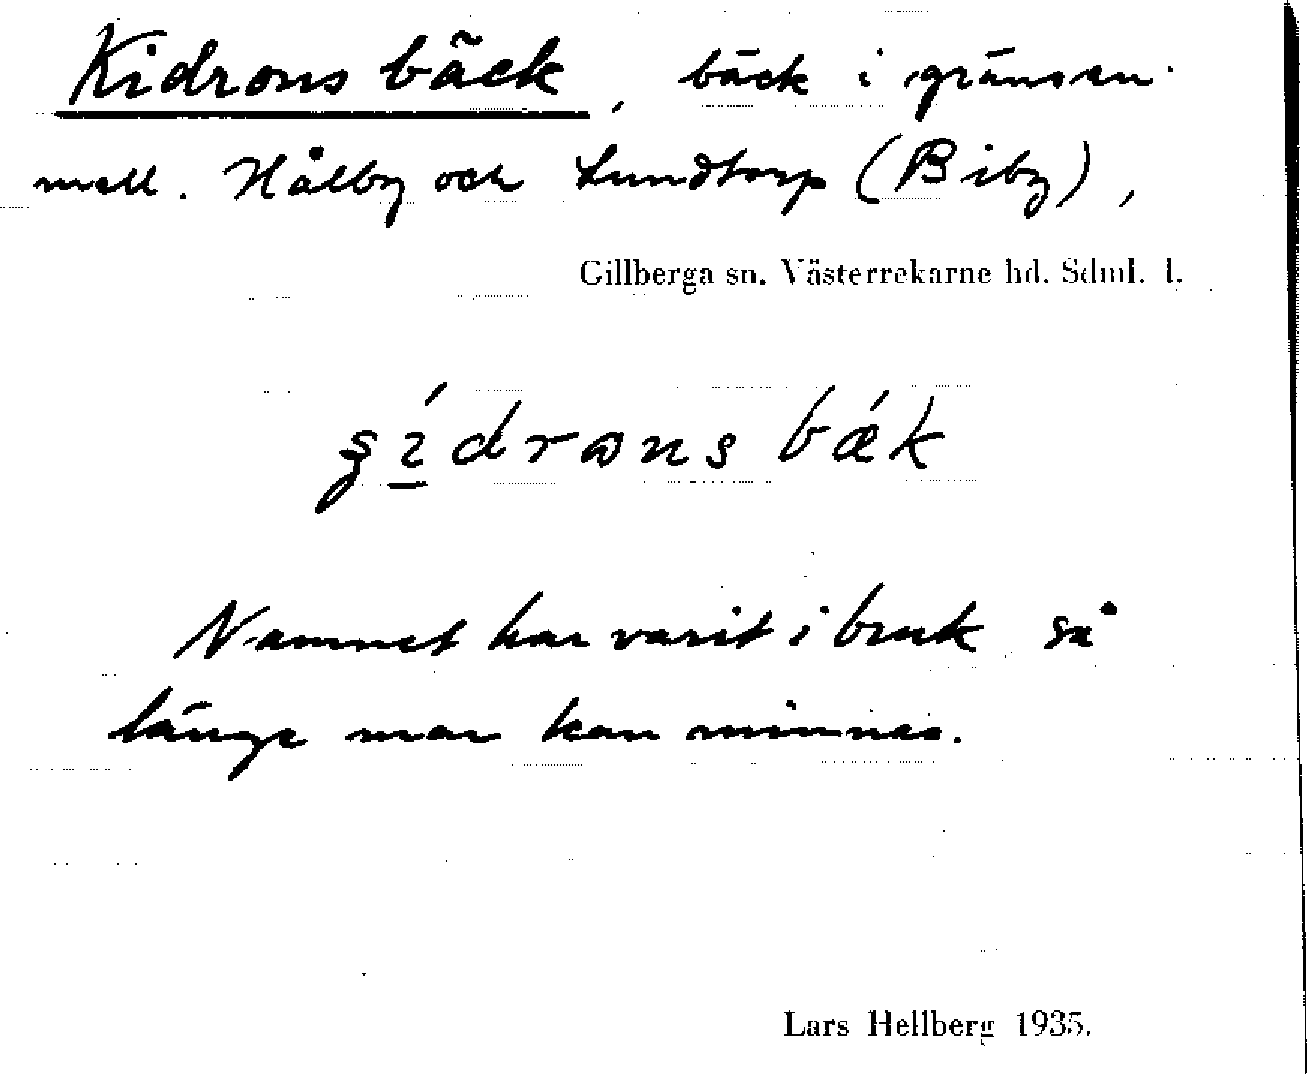 Kidrons bäck, bäck i gränsen
mell. Hålby och Lundtorp (Biby),
Gillberga sn. Västerrekarne hd. Sdml. l.
bǽk
Namnet har varit i bruk så
länge man kan minnas.
Lars Hellberg 1935.